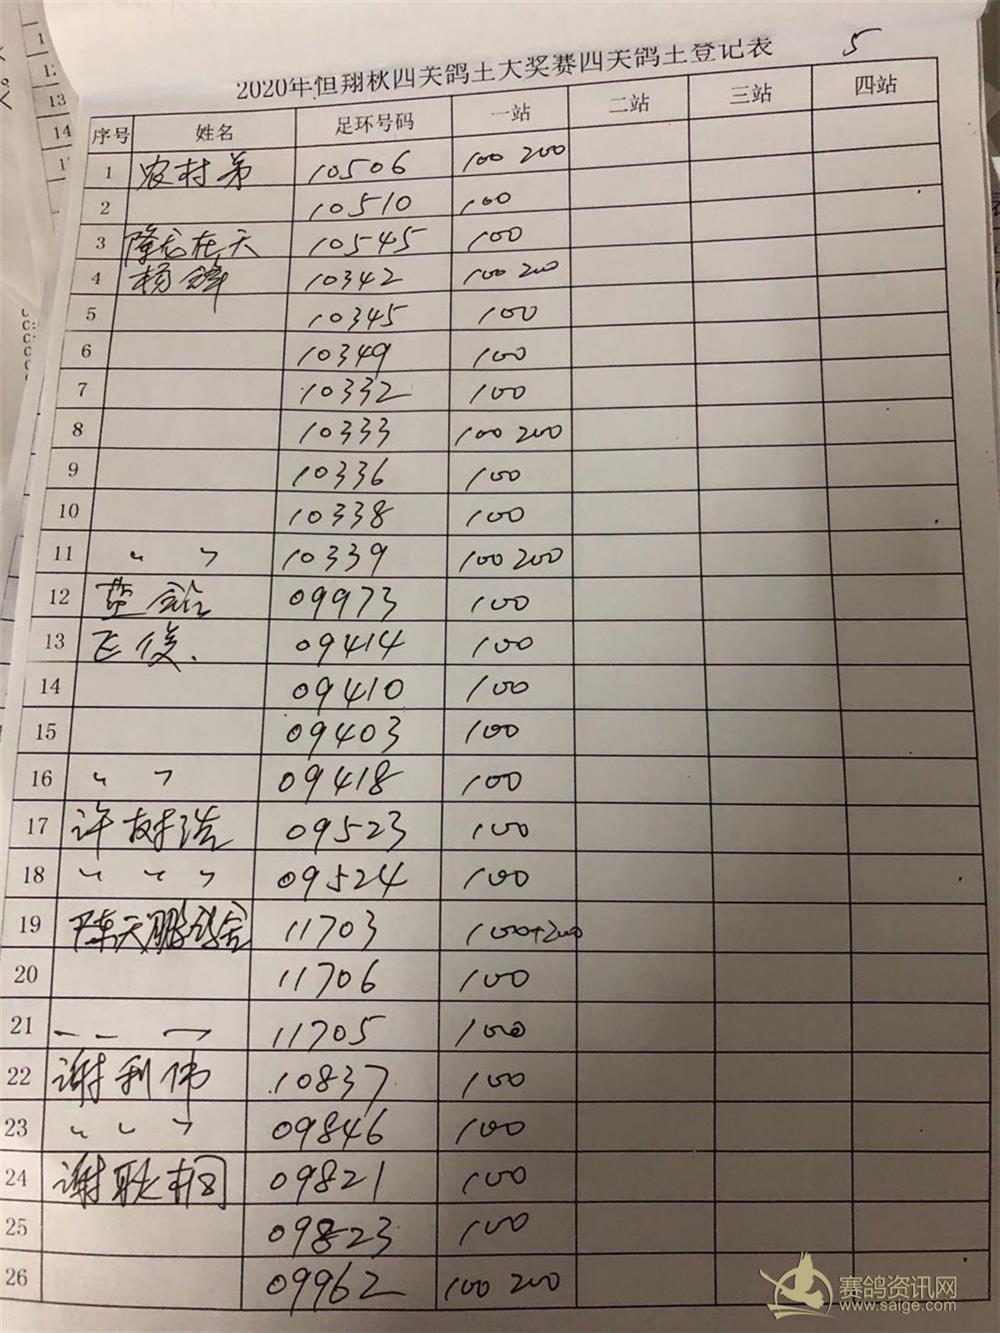 2020年恒翔秋四关鸽王大奖赛四关鸽王登记表 5
序号 姓名 足环号码 一站 二站 三站 四站
1 农村弟 10506 100 200
2 10510 100
3 隆龙在天 10545 100
4 杨锋 10342 100 200
5 10345 100
6 10349 100
7 10332 100
8 10333 100 200
9 10336 100
10 10338 100
11 〃 〃 10339 100 200
12 09973 100
13 飞俊 09414 100
14 09410 100
15 09403 100
16 〃 〃 09418 100
17 许树浩 09523 100
18 〃 〃 〃 09524 100
19 陈天鹏鸽舍 11703 100+200
20 11706 100
21 11705 100
22 谢利伟 10837 100
23 〃 〃 〃 09846 100
24 谢耿桐 09821 100
25 09823 100
26 09962 100 200
赛鸽资讯网
www.saige.com